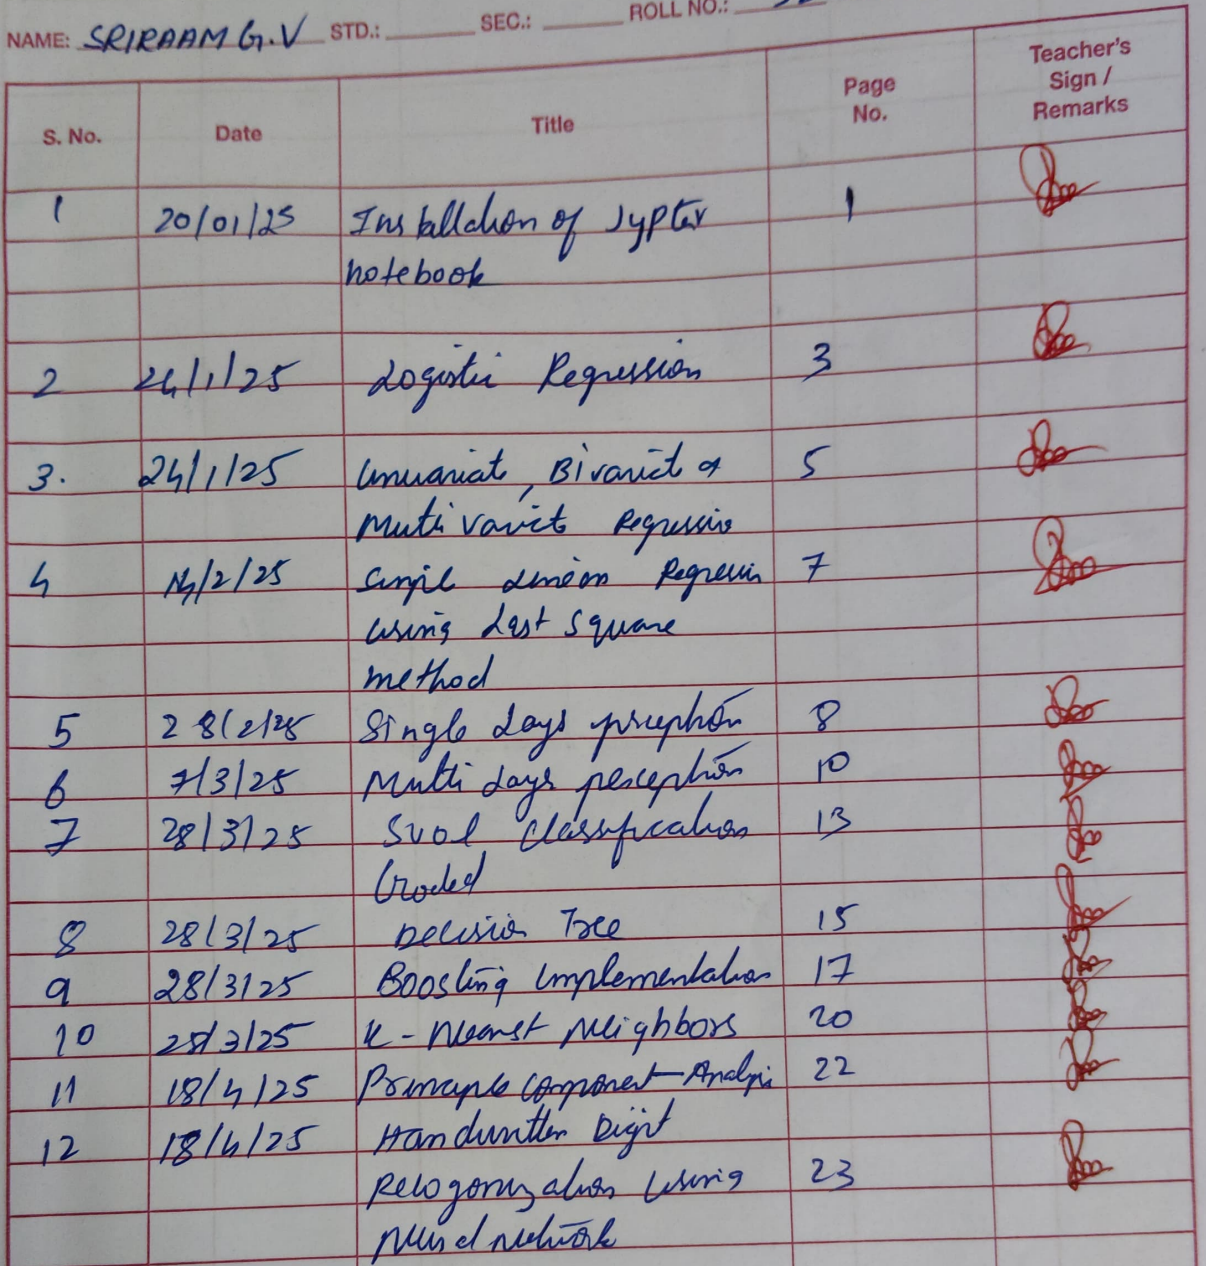 NAME: SRIRAAM G.V STD.: SEC.: ROLL NO.:
S. No. Date Title Page No. Teacher's Sign / Remarks
1 20/01/25 Installation of Jypter 1
notebook
2 24/1/25 Logistic Regression 3
3. 24/1/25 Univariat, Bivarict 5
Muti varict Regressio
4 14/2/25 Simple Linear Regression 7
using Last Square
method
5 28/2/25 Single Layer 8
6 7/3/25 Multi Layer perception 10
7 28/3/25 Classification 13
8 28/3/25 Decision Tree 15
9 28/3/25 Boosting Implementation 17
10 25/3/25 K-Nearest Neighbors 20
11 18/4/25 Principle Component Analysis 22
12 18/4/25 Handwritten Digit
using 23
network